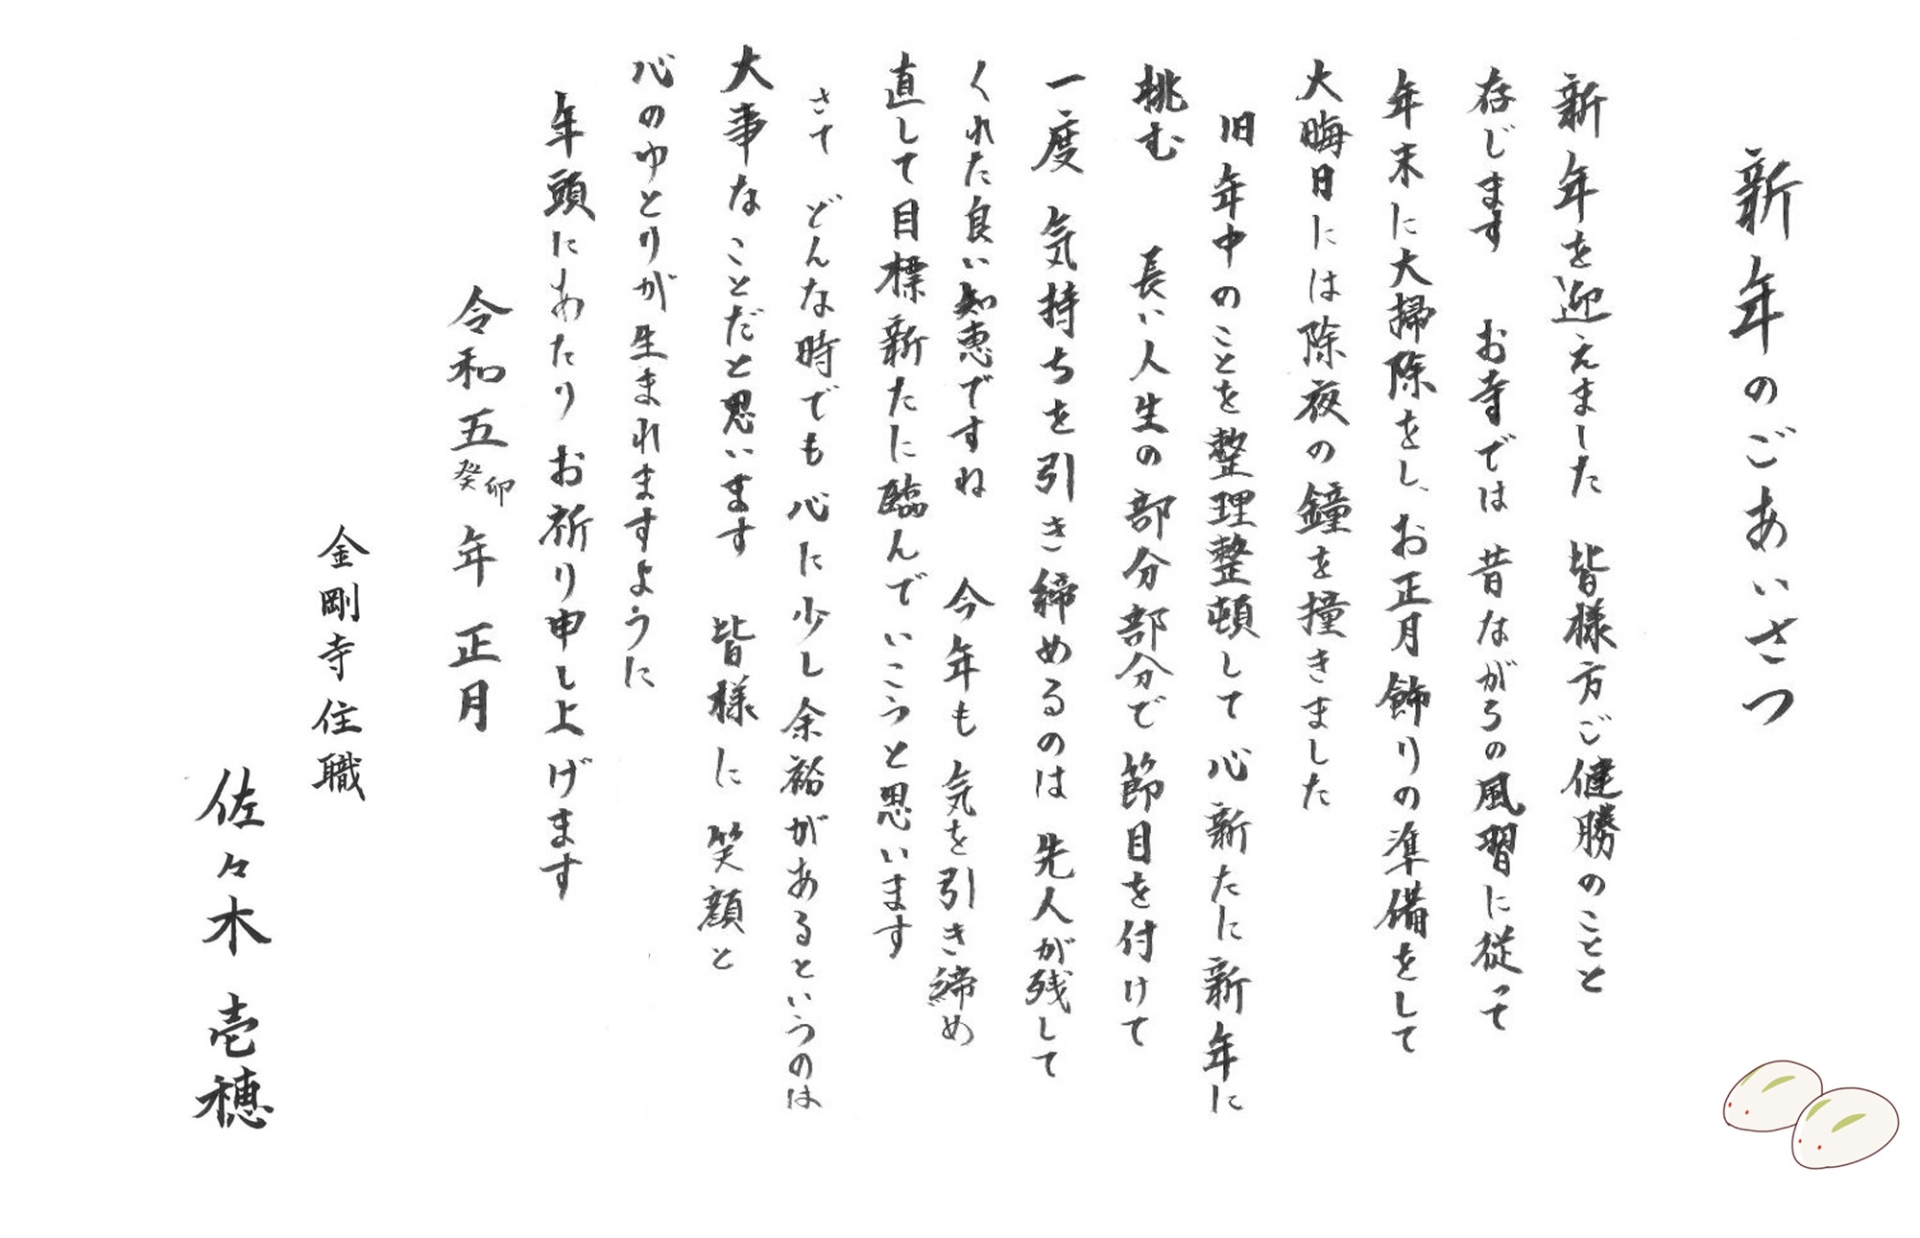 新年のごあいさつ
新年を迎えました 皆様方ご健勝のことと
存じます お寺では 昔ながらの風習に従って
年末に大掃除をし、お正月飾りの準備をして
大晦日には除夜の鐘を撞きました
旧年中のことを整理整頓して 心新たに新年に
挑む 長い人生の部分部分で節目を付けて
一度 気持ちを引き締めるのは 先人が残して
くれた良い知恵ですね 今年も 気を引き締め
直して目標新たに臨んでいこうと思います
さて どんな時でも 心に少し余裕があるというのは
大事なことだと思います 皆様に 笑顔と
心のゆとりが生まれますように
年頭にあたり お祈り申し上げます
令和五癸卯年 正月
金剛寺 住職
佐々木 壱穂